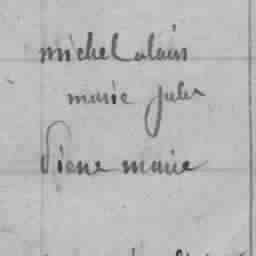 michel alain
marie jules
Pierre marie